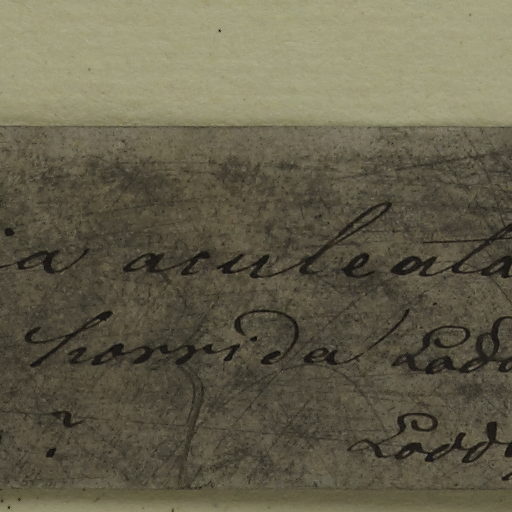 ia aculeata
horrida Lodd
? Lodd